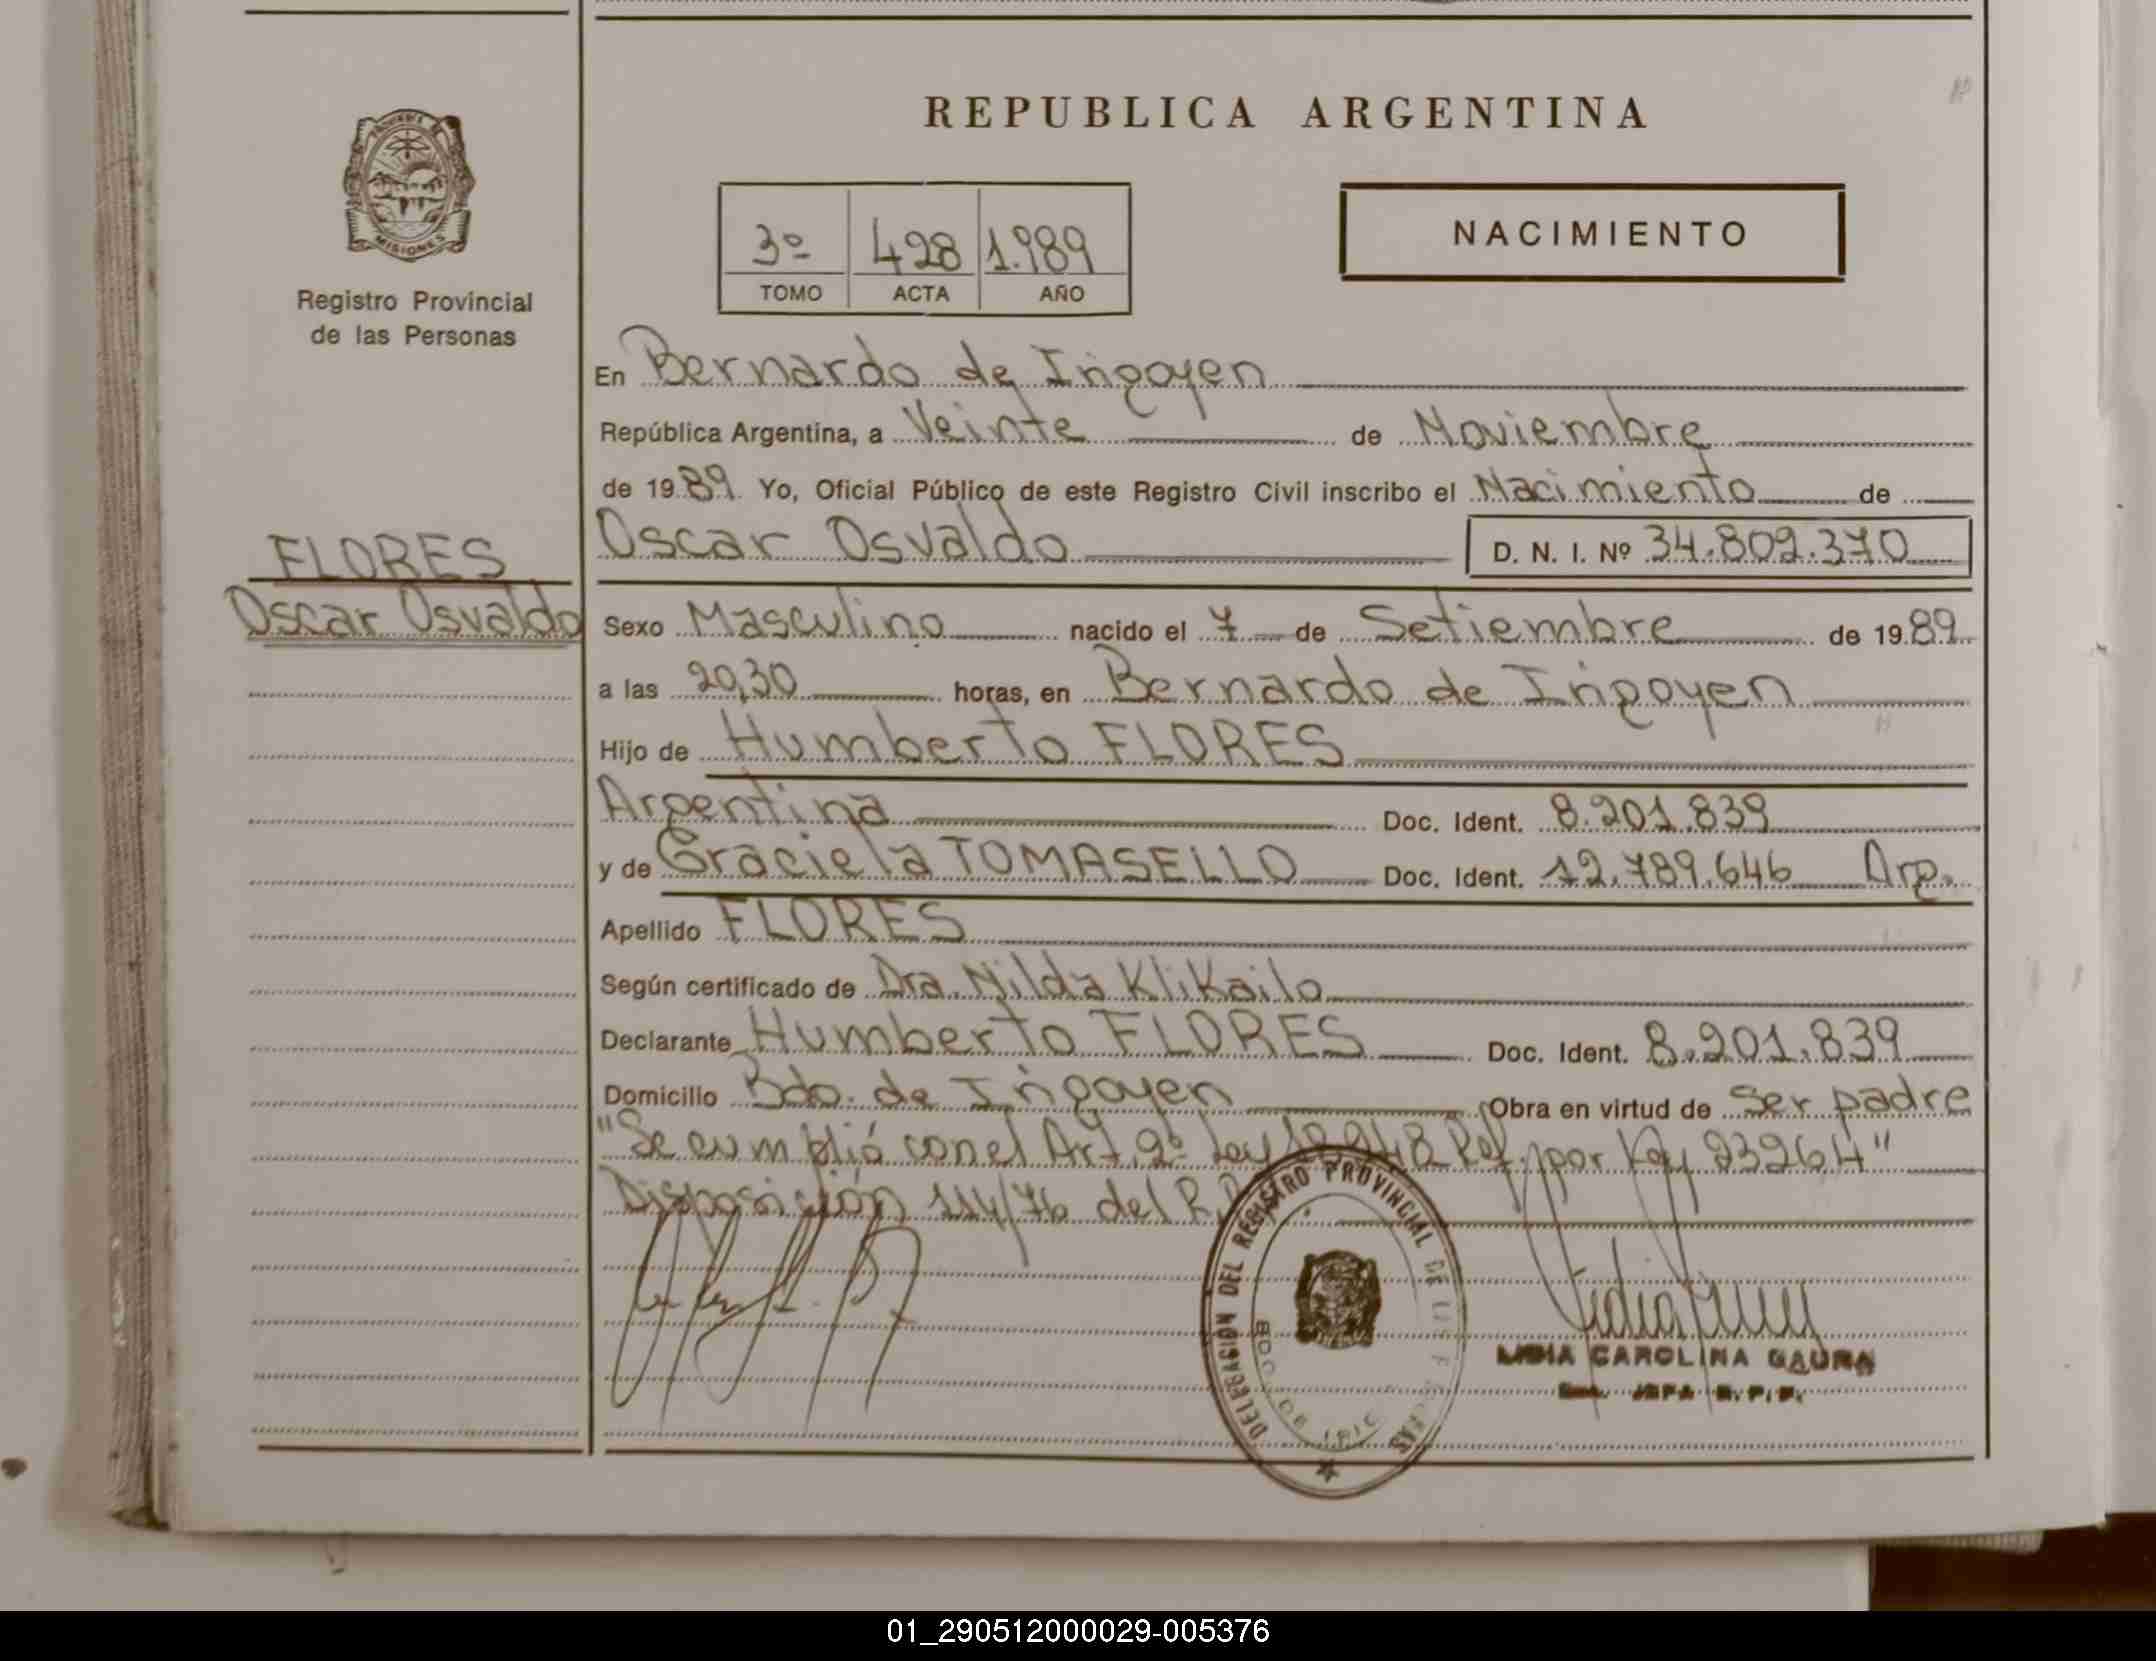 REPUBLICA ARGENTINA
PROVINCIA DE
MISIONES
Registro Provincial
de las Personas
3º 428 1.989
TOMO ACTA AÑO
NACIMIENTO
En Bernardo de Irigoyen
República Argentina, a Veinte de Noviembre
de 1989 Yo, Oficial Público de este Registro Civil inscribo el Nacimiento de
Oscar Osvaldo D. N. I. Nº 34.802.370
FLORES
Oscar Osvaldo
Sexo Masculino nacido el 7 de Setiembre de 1989
a las 20,30 horas, en Bernardo de Irigoyen
Hijo de Humberto FLORES
Argentina Doc. Ident. 8.201.839
y de Graciela TOMASELLO Doc. Ident. 12.789.646 Arg.
Apellido FLORES
Según certificado de Dra. Nilda Klikailo
Declarante Humberto FLORES Doc. Ident. 8.201.839
Domicilio Bdo. de Irigoyen Obra en virtud de ser padre
"Se cumplió con el Art. 2º Ley Ref. por Ley 23264"
Disposición 114/76 del
DELEGACION DEL REGISTRO PROVINCIAL DE LAS
BDO. DE IRIG
LIDIA CAROLINA GAUNA
JEFA R.P.P.
01_290512000029-005376